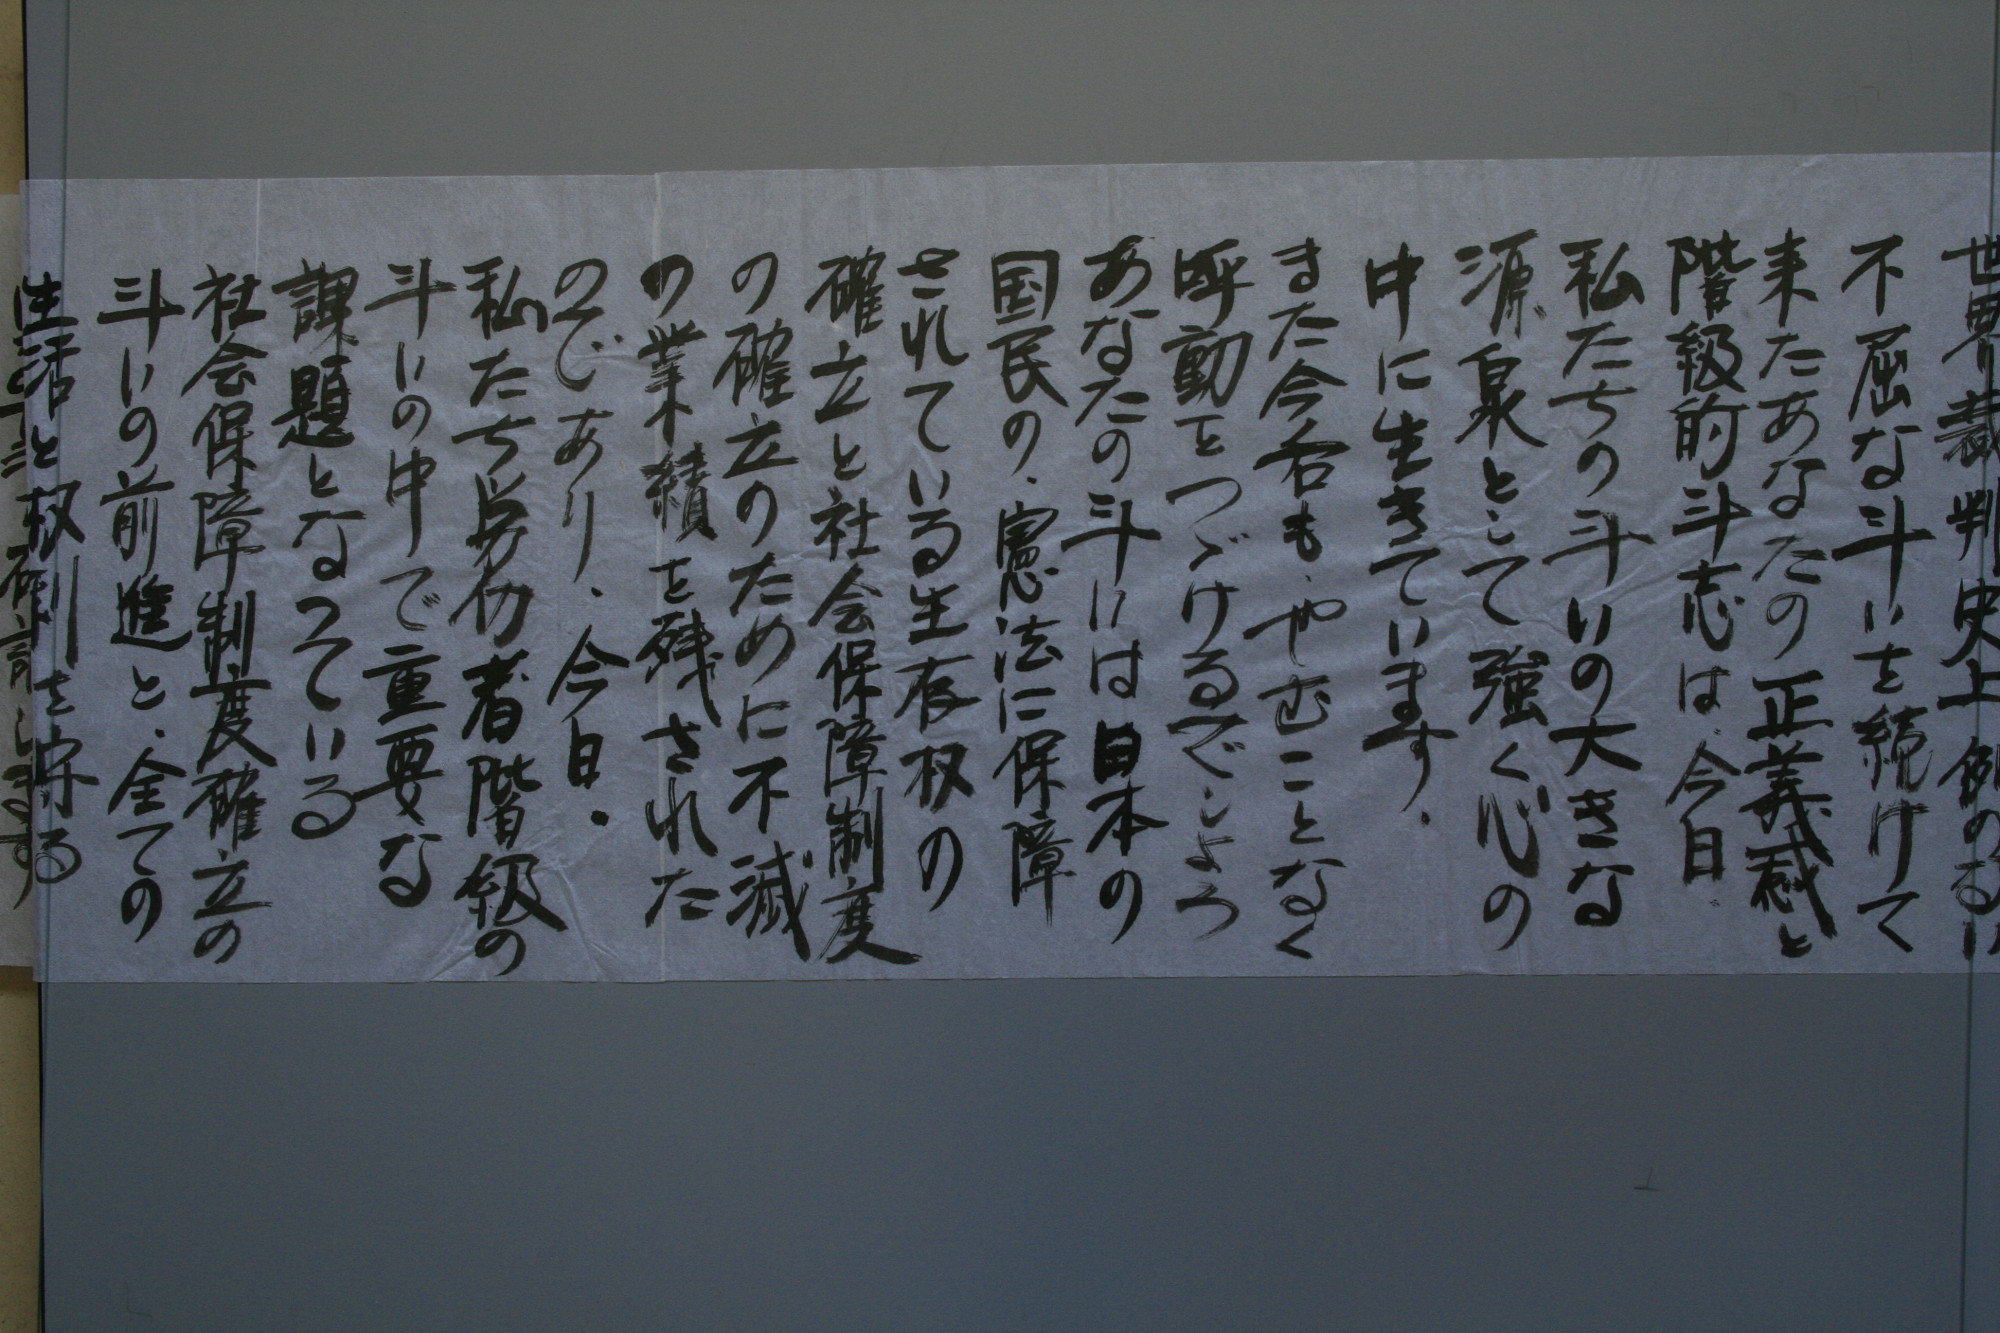 世界裁判史上例のない
不屈な斗いを続けて
来たあなたの正義感と
階級的斗志は、今日
私たちの斗いの大きな
源泉として強く心の
中に生きています。
また今后も、やむことなく
呼動をつづけるでしょう
あなたの斗いは日本の
国民の、憲法に保障
されている生存权の
確立と社会保障制度
の確立のために不滅
の業績を残された
のであり、今日、
私たち労仂者階級の
斗いの中で重要な
課題となっている
社会保障制度確立の
斗いの前進と、全ての
生活と权利を守る